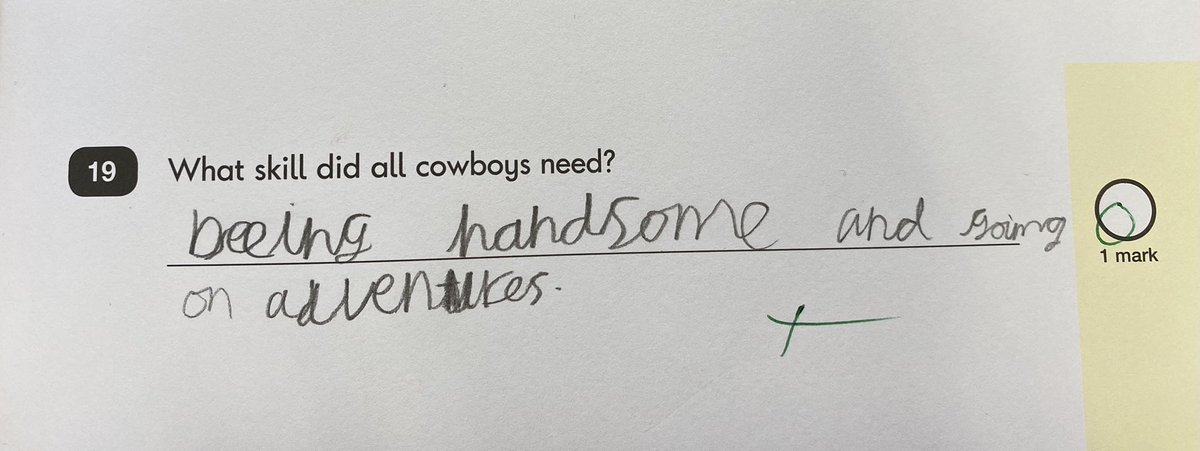 19 What skill did all cowboys need?
beeing handsome and going
on adventures.
1 mark